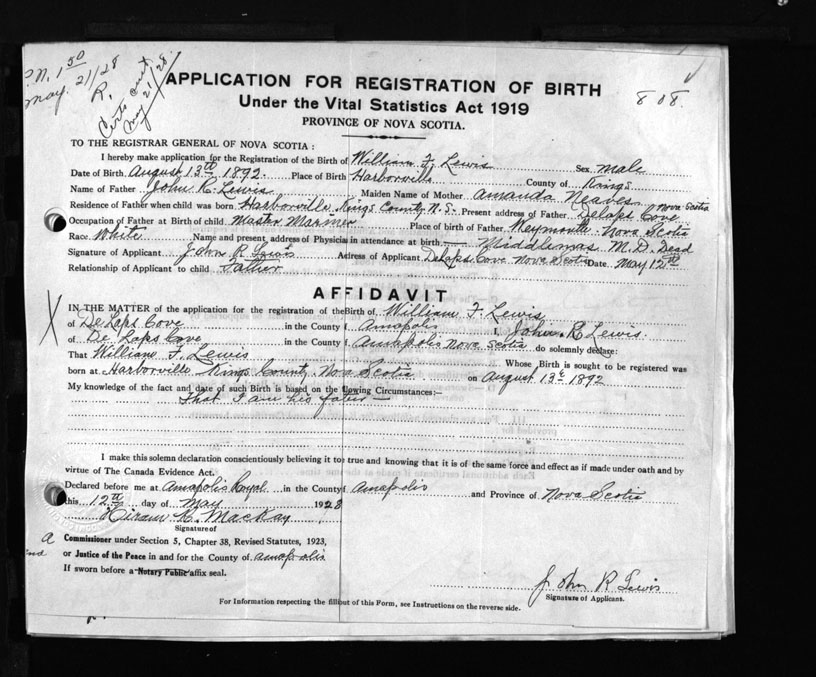 P.N. 1 50
May. 21/28
R.
Certs sent
May 21/28
808.
APPLICATION FOR REGISTRATION OF BIRTH
Under the Vital Statistics Act 1919
PROVINCE OF NOVA SCOTIA.
TO THE REGISTRAR GENERAL OF NOVA SCOTIA :
I hereby make application for the Registration of the Birth of William F. Lewis Sex Male
Date of Birth August 13th 1892. Place of Birth Harborville County of Kings
Name of Father John R. Lewis Maiden Name of Mother Amanda Neaves
Residence of Father when child was born Harborville Kings County N.S. Present address of Father Delaps Cove Nova Scotia
Occupation of Father at Birth of child Master Mariner Place of birth of Father Weymouth Nova Scotia
Race White Name and present address of Physician in attendance at birth Middlemas M.D. Dead
Signature of Applicant John R Lewis Adress of Applicant Delaps Cove Nova Scotia Date May 12th
Relationship of Applicant to child Father
AFFIDAVIT
IN THE MATTER of the application for the registration of the Birth of William F. Lewis
of De Laps Cove in the County of Annapolis I, John R Lewis.
of De Laps Cove in the County of Annapolis Nova Scotia do solemnly declare:
That William F. Lewis Whose Birth is sought to be registered was
born at Harborville Kings County Nova Scotia on August 13th 1892
My knowledge of the fact and date of such Birth is based on the llowing Circumstances:—
That I am his father
I make this solemn declaration conscientiously believing it to true and knowing that it is of the same force and effect as if made under oath and by
virtue of The Canada Evidence Act.
Declared before me at Annapolis Royal in the County f Annapolis and Province of Nova Scotia
this 12th day of May 1928
Hiram K. MacKay
Signature of
a Commissioner under Section 5, Chapter 38, Revised Statutes, 1923,
or Justice of the Peace in and for the County of Annapolis
If sworn before a Notary Public affix seal.
John R Lewis
Signature of Applicant.
For Information respecting the fillin out of this Form, see Instructions on the reverse side.